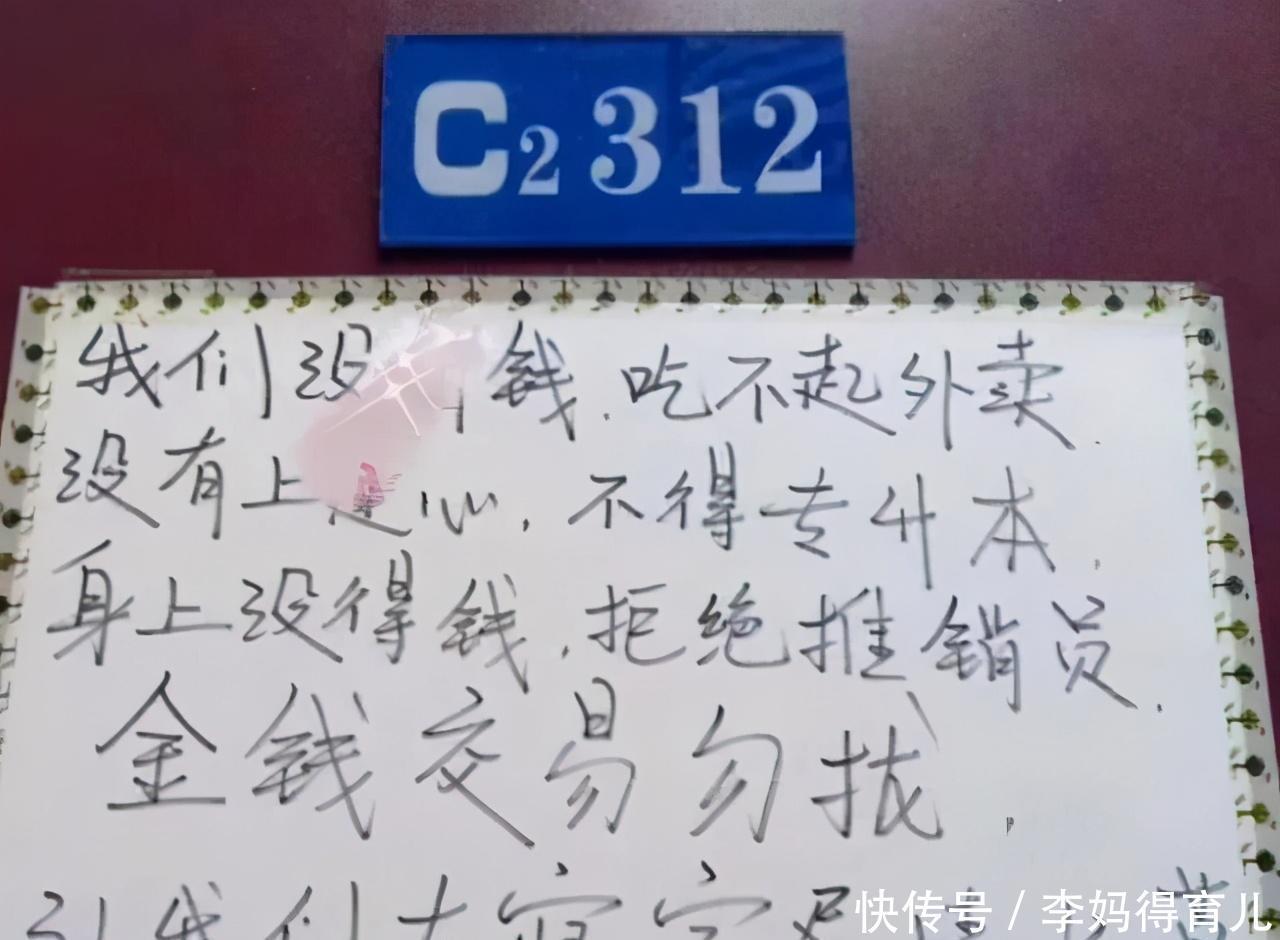 C2 312
我们没 钱.吃不起外卖.
没有上进心,不得专升本.
身上没得钱.拒绝推销员.
金钱交易勿扰
快传号 / 李妈得育儿